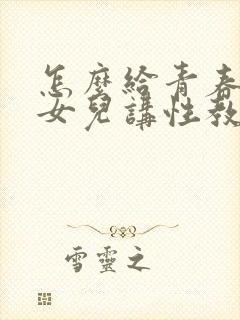 怎麼給青春
女兒講性教
雪靈之